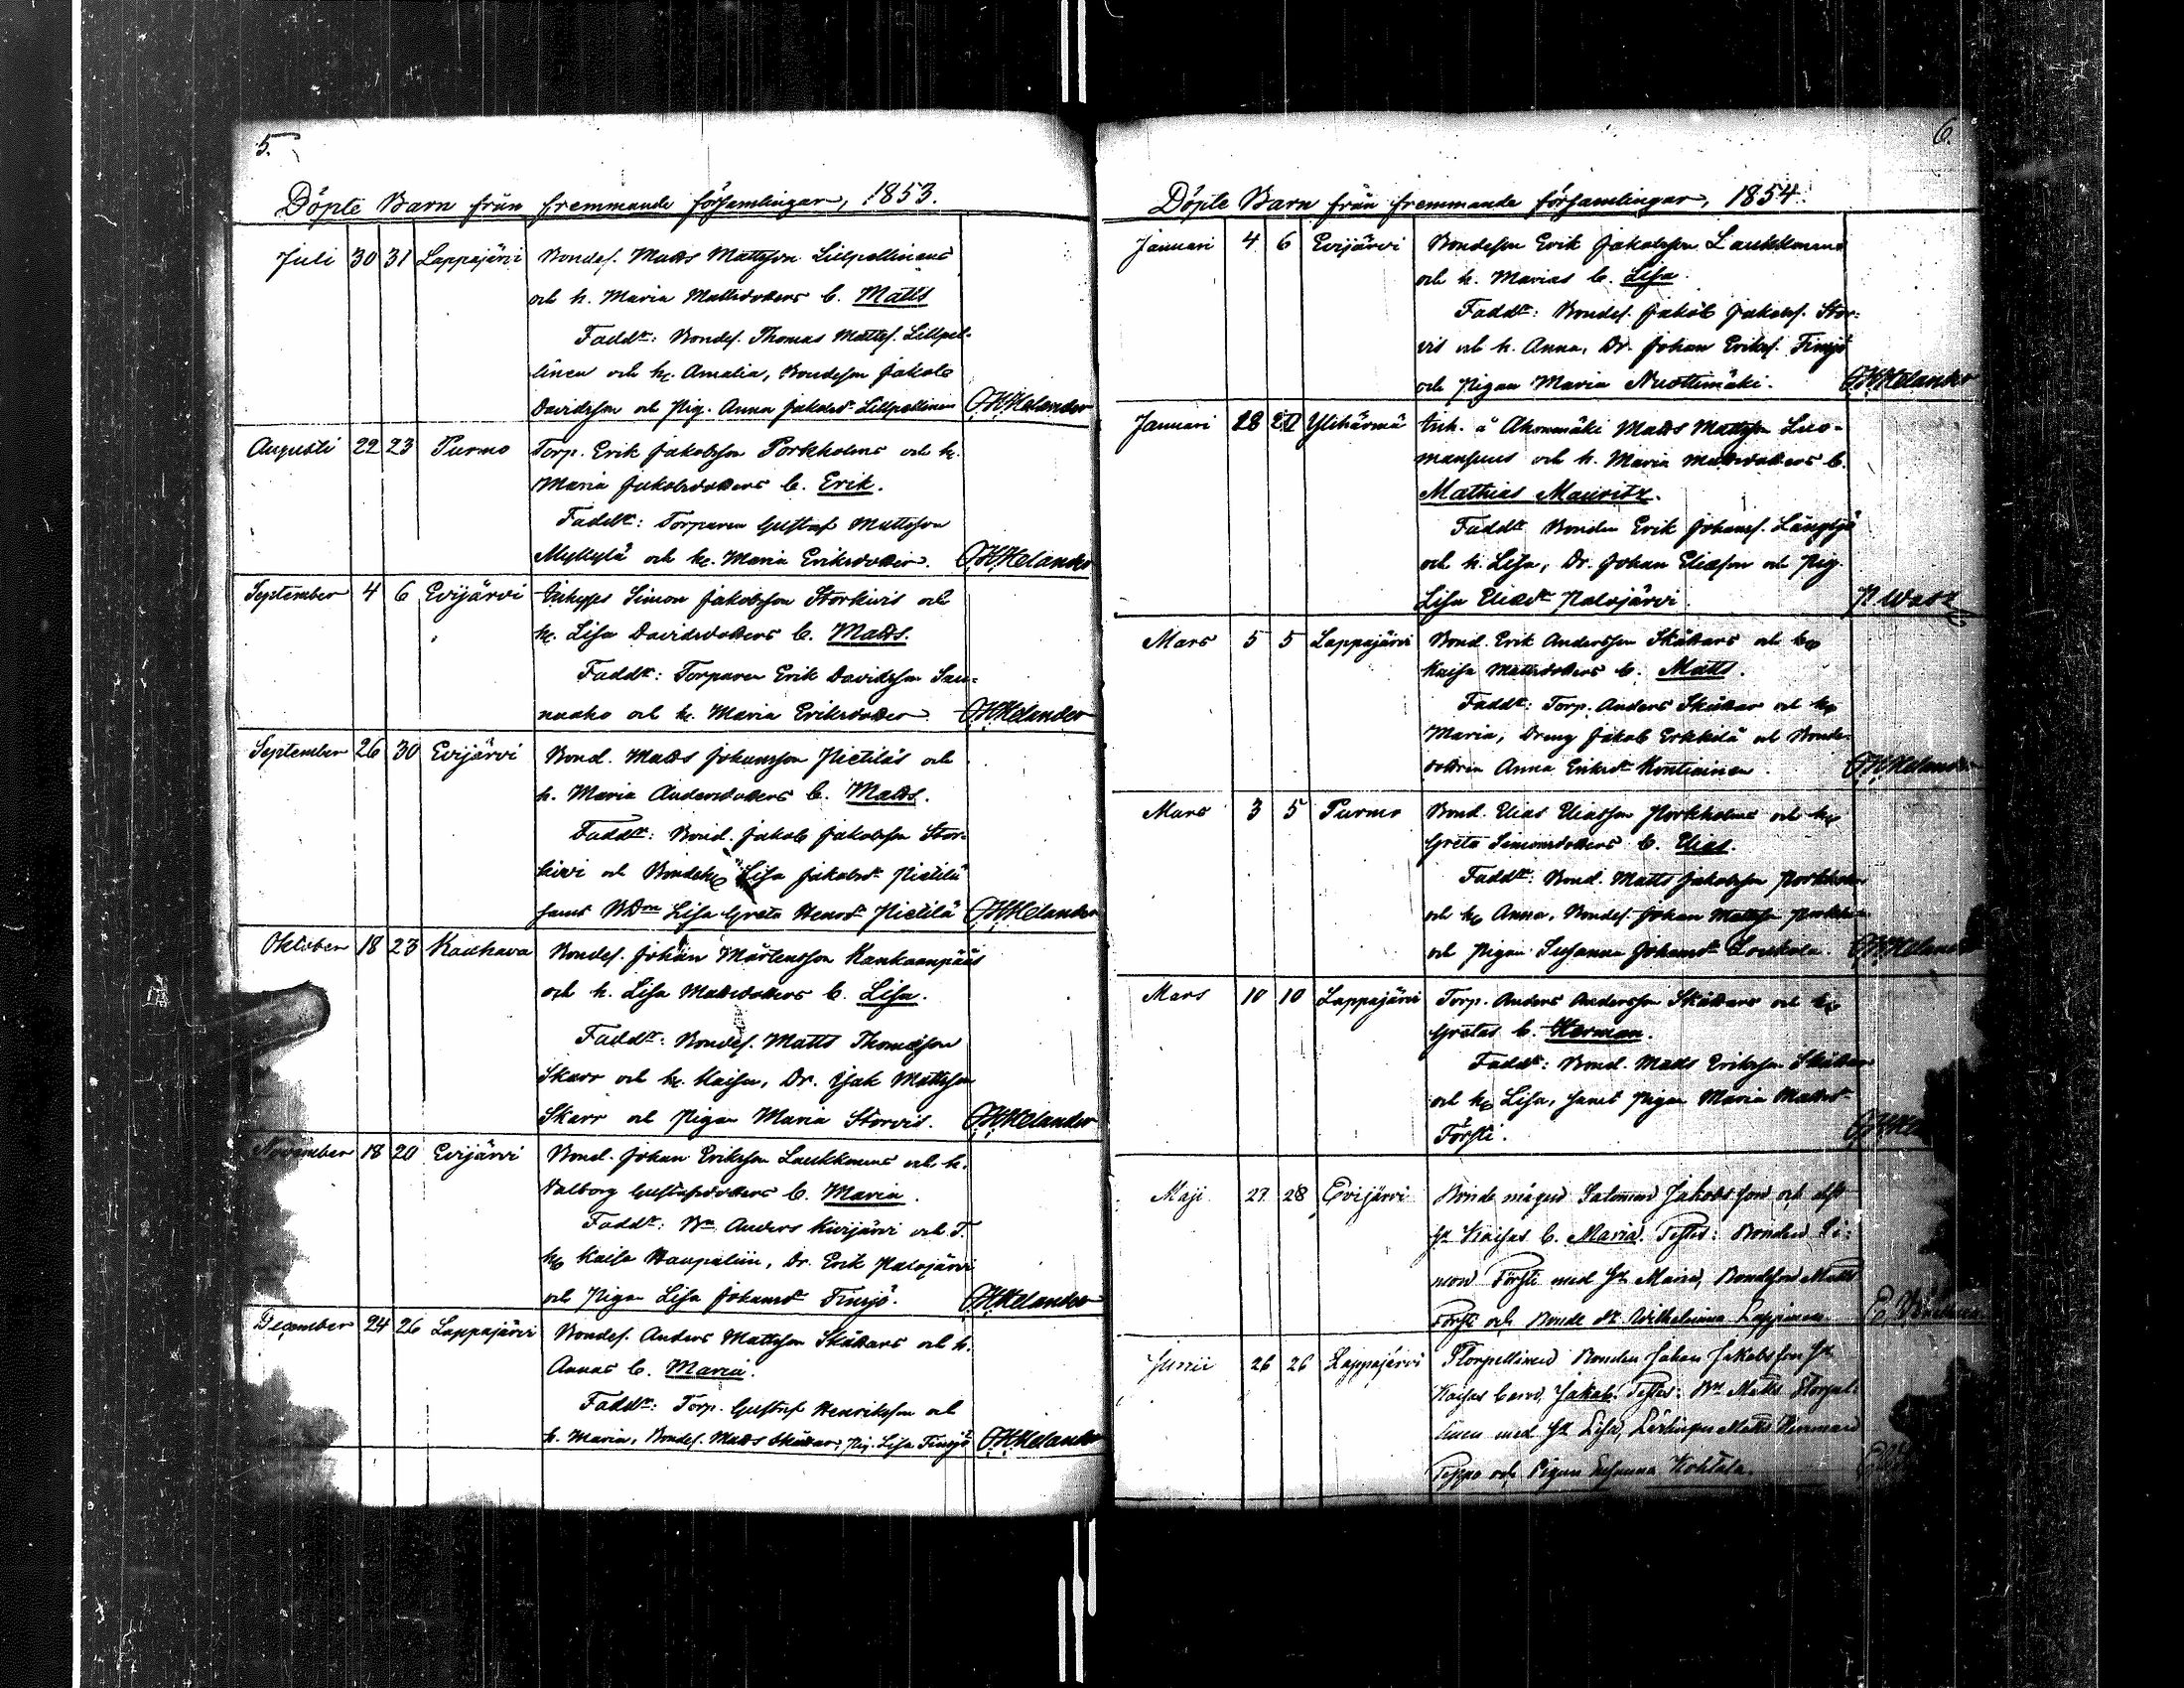 5.
Döpte Barn från fremmande församlingar, 1853.
Juli 30 31 Lappajärvi Bondes. Matts Mattsson Lillpellinens
och h. Maria Mattsdotters b. Matts
Faddr: Bondes. Thomas Mattss. Lillpel-
linen och hu. Amalia, Bondeson Jakob
Davidsson och Pig. Anna Jakobsdr Lillpellinen OHHelander
Augusti 22 23 Purmo Torp. Erik Jakobsson Porkholms och h.
Maria Jakobsdotters b. Erik.
Faddr: Torparen Gustaf Mattsson
Myllylä och hu. Maria Eriksdotter. OHHelander
September 4 6 Evijärvi Inhyses Simon Jakobsson Storkivis och
hu. Lisa Davidsdotters b. Matts.
Faddr: Torparen Erik Davidsson Sau-
nuaho och hu. Maria Eriksdotter. OHHelander
September 26 30 Evijärvi Bond. Matts Johansson Pietiläs och
h. Maria Andersdotters b. Matts.
Faddr: Bond. Jakob Jakobsson Stor-
kivi och Bondehu Lisa Jakobsdr Pietilä
samt Lisa Greta Henrdr Pietilä OHHelander
Oktober 18 23 Kauhava Bondes. Johan Mårtensson Kankaanpääs
och h. Lisa Mattsdotters b. Lisa.
Faddr: Bondes. Matts Thomasson
Skarr och hu. Kaisa, Dr. Isak Mattsson
Skarr och Pigan Maria Storvis. OHHelander
November 18 20 Evijärvi Bond. Johan Eriksson Laukkonens och h.
Valborg Gustafsdotters b. Maria.
Faddr: Bn Anders Kivijärvi och T.
hu Kaisa Haupaliin, Dr. Erik Palojärvi
och Pigan Lisa Johansdr Finsjö. OHHelander
December 24 26 Lappajärvi Bondes. Anders Mattsson Skåttars och h.
Annas b. Maria.
Faddr: Torp. Gustaf Henriksson och
h. Maria, Bondes. Matts Skåttar, Pig. Lisa Finsjö OHHelander
6.
Döpte Barn från fremmande församlingar, 1854.
Januari 4 6 Evijärvi Bondeson Erik Jakobsson Laukkonens
och h. Marias b. Lisa.
Faddr: Bondes. Jakob Jakobss. Stor-
vis och h. Anna, Dr. Johan Erikss. Finsjö
och Pigan Maria Nuottimäki. OHHelander
Januari 28 Ylihärmä Inh. å Ahonmäki Matts Mattsson Luo-
och h. Maria Mattsdotters b.
Mathias Mauritz.
Faddr Bonden Erik Johanss. Långsjö
och h. Lisa, Dr. Johan Eliasson och Pig.
Lisa Eliasdr Palojärvi.
Mars 5 5 Lappajärvi Bond. Erik Andersson Skåttars och hu
Kaisa Mattsdotters b. Matts.
Faddr: Torp. Anders Skåttar och hu
Maria, Dreng Jakob Erkkilä och Bonde-
dottren Anna Eriksdr Kontiainen. OHHelander
Mars 3 5 Purmo Bond. Elias Eliasson Porkholms och hu
Greta Simonsdotters b. Elias.
Faddr: Bond. Matts Jakobsson Porkholm
och hu Anna, Bondes. Johan Mattsson
och Pigan Susanna Johansdr Loukola. OHHelander
Mars 10 10 Lappajärvi Torp. Anders Andersson Skåttars och hu
Gretas b. Herman.
Faddr: Bond. Matts Eriksson Skåttar
och hu Lisa, samt Pigan Maria Mattsdr
Försti.
Maji 27 28 Evijärvi Bonde mågen Salomon Jakobsson och dess
hu Kaisas b. Maria. Testes: Bonden Si-
mon Försti med hu Maria, Bondeson Matts
Försti och Bonde dr. Wilhelmina Lappinen.
Junii 26 26 Lappajärvi Storpellinen Bonden Johan Jakobsson hu
Kaisas barn Jakob. Testes: Bn Matts Storpel-
linen med hu Lisa, Matts Herman
Teppo och Pigan Susanna Kohtala.